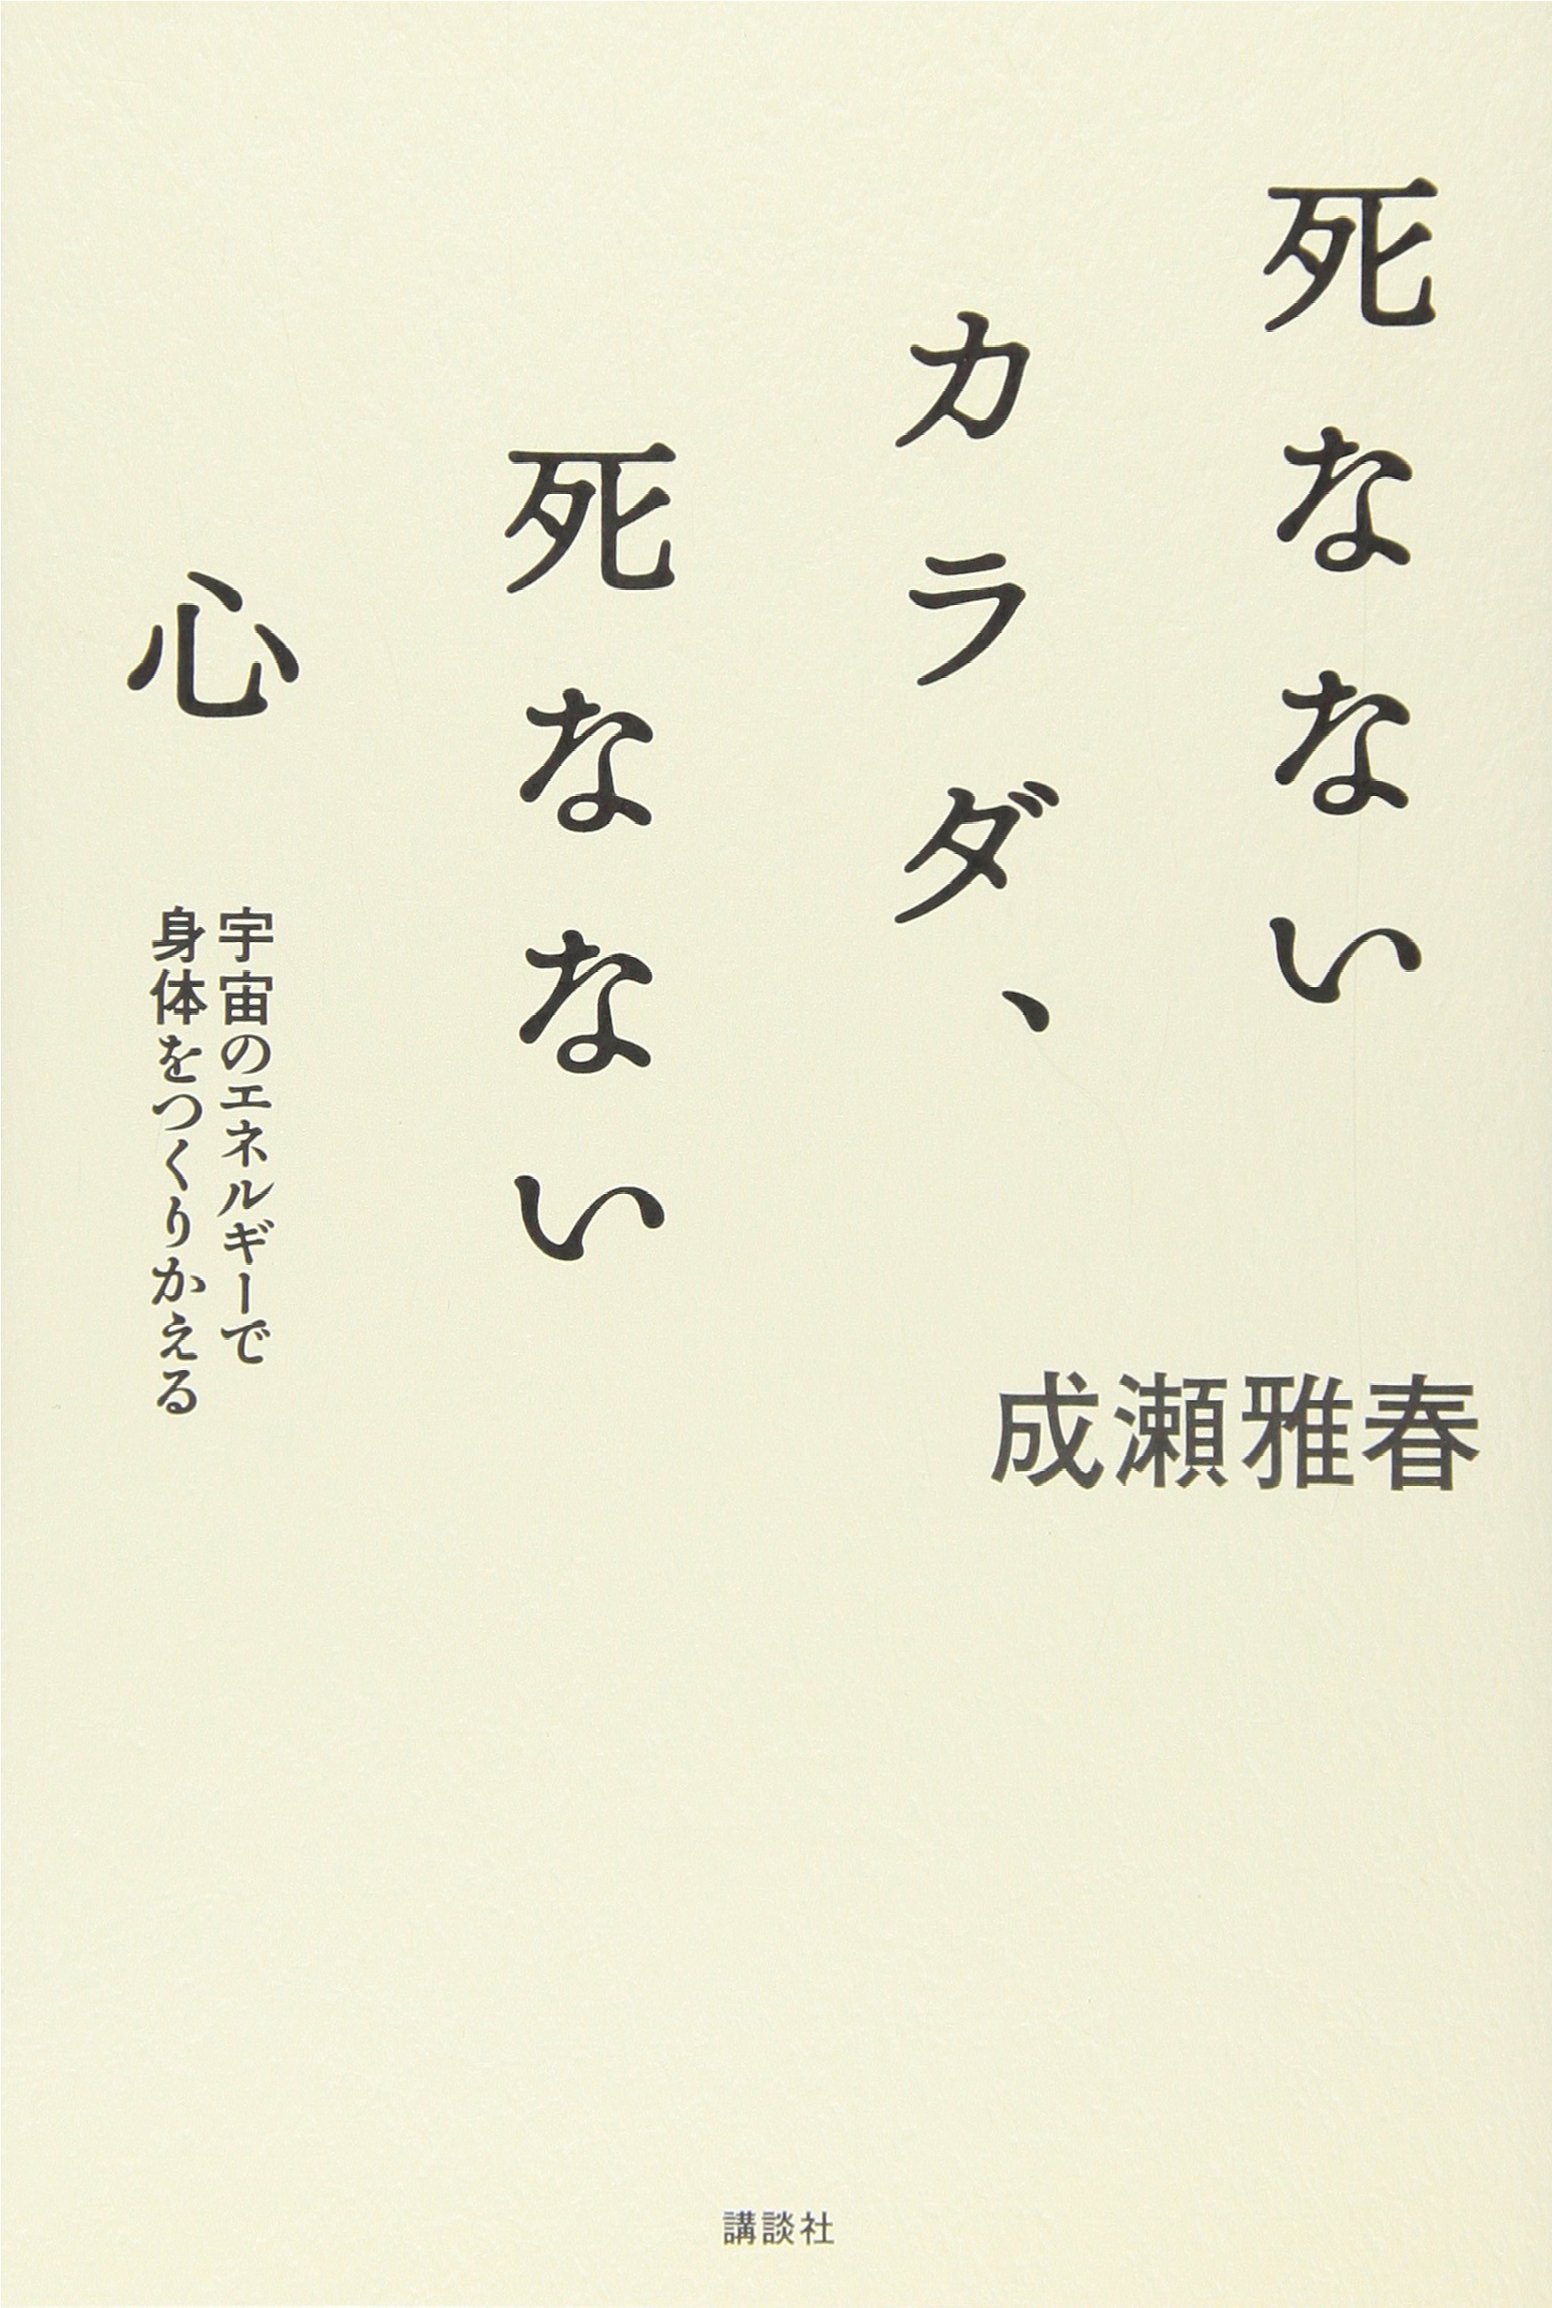 死なない
カラダ、
死なない
心
宇宙のエネルギーで
身体をつくりかえる
成瀬雅春
講談社